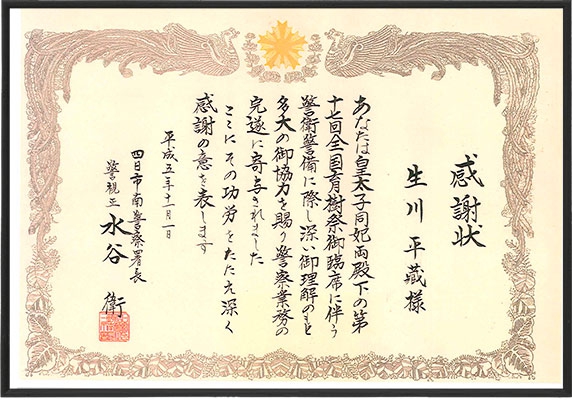 感謝状
生川平蔵様
あなたは皇太子同妃両殿下の第
十七回全国育樹祭御臨席に伴う
警衛警備に際し深い御理解のもと
多大の御協力を賜り警察業務の
完遂に寄与されました
ここにその功労をたたえ深く
感謝の意を表します
平成五年十一月一日
四日市南警察署長
警視正 水谷 衛